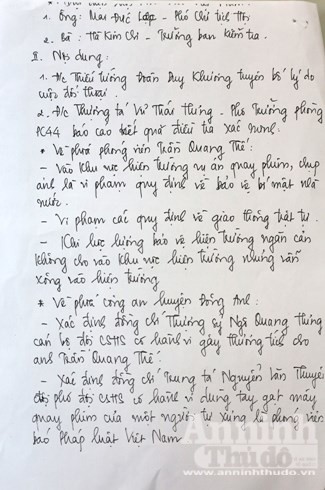 1. Ông: Mai Đức Lộc - Phó Chủ tịch Hội
2. Bà: Hà Kim Chi - Trưởng ban kiểm tra.
II. Nội dung:
1. Đ/c Thiếu tướng Đoàn Duy Khương tuyên bố lý do
cuộc đối thoại.
2. Đ/c Thượng tá Vũ Thái Hưng - Phó Trưởng phòng
PC44 báo cáo kết quả điều tra xác minh:
* Về phía phóng viên Trần Quang Thế:
- Vào khu vực hiện trường vụ án quay phim, chụp
ảnh là vi phạm quy định về bảo vệ bí mật nhà
nước.
- Vi phạm các quy định về giao thông trật tự.
- Khi lực lượng bảo vệ hiện trường ngăn cản
không cho vào khu vực hiện trường nhưng vẫn
xông vào hiện trường.
* Về phía công an huyện Đông Anh:
- Xác định đồng chí Thượng sỹ Ngô Quang Hưng
cán bộ đội CSHS có hành vi gây thương tích cho
anh Trần Quang Thế.
- Xác định đồng chí Trung tá Nguyễn Văn Thuyên
đội phó đội CSHS có hành vi dùng tay gạt máy
quay phim của một người tự xưng là phóng viên
báo Pháp luật Việt Nam
An ninh
Thủ đô
www.anninhthudo.vn